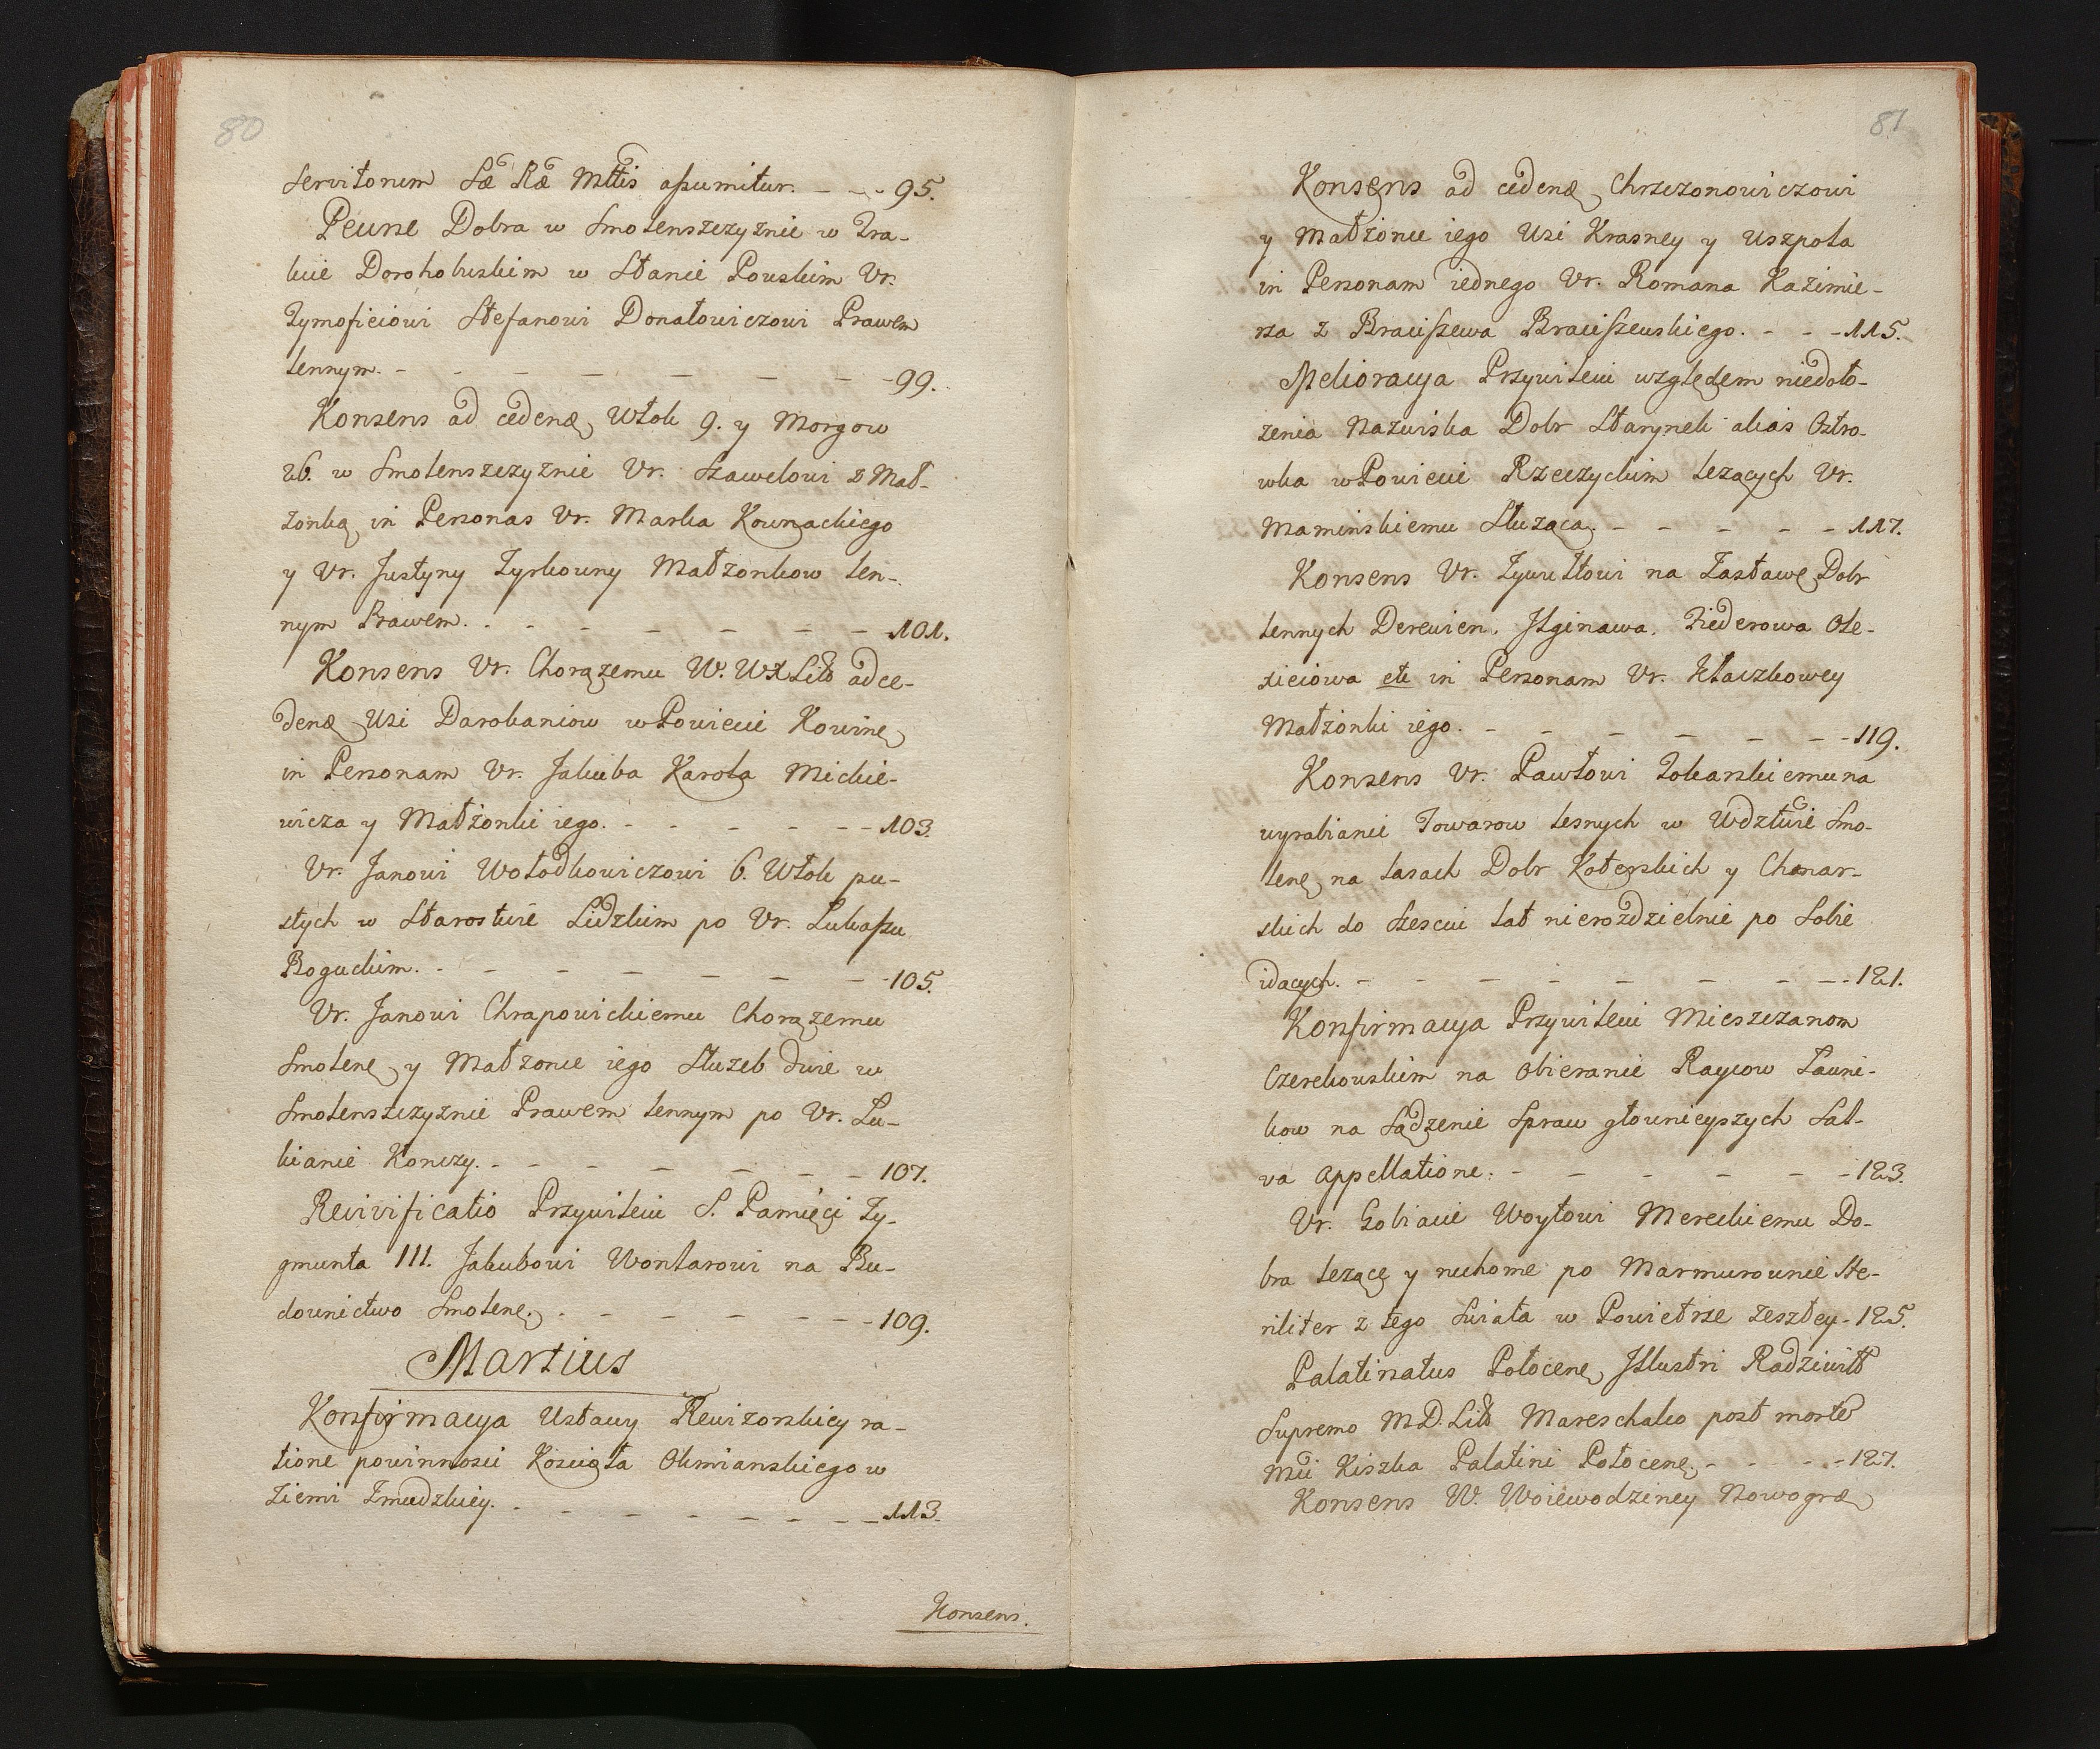 80
Servitorum Sæ Ræ Mttis aſsumitur. - - - 95.
Pewne Dobra w Smolenszczyznie w Tra-
kcie Dorohobuskim w Stanie Pouskim Ur.
Tymofieiowi Stefanowi Donatowiczowi Prawem
lennym. - - - - - - - - 99.
Konsens ad cedenđ Włok 9. y Morgow
26. w Smolenszczyznie Ur. Szawelowi z Mał-
żonką in Personas Ur. Marka Kownackiego
y Ur. Justyny Zyrkowny Małżonkow len-
nym Prawem. - - - - - - - 101.
Konsens Ur. Chorązemu W. WXLitt ad ce-
denđ Wsi Darokaniow w Powiecie Kowinę
in Personam Ur. Jakuba Karola Mickie-
wicza y Małżonki iego. - - - - - - 103.
Ur. Janowi Wołodkowiczowi 6. Włok pu-
stych w Starostwie Lidzkim po Ur. Łukaſzu
Boguckim. - - - - - - - 105.
Ur. Janowi Chrapowickiemu Chorązemu
Smolenę y Małzonce iego Służeb dwie w
Smolenszczyznie Prawem lennym po Ur. Lu-
kianie Konczy. - - - - - - - 107.
Revivificatio Przywileiu S. Pamięci Zy-
gmunta III. Jakubowi Wontarowi na Bu-
downictwo Smolenę. - - - - - - 109.
Martius
Konfirmacya Ustawy Rewizorskiey ra-
tione powinnosci Kościoła Okmianskiego w
Ziemi Zmudzkiey. - - - - - - - 113.
Konsens.
81
Konsens ad cedenđ Chrzczonowiczowi
y Małżonce iego Wsi Krasney y Uszpola
in Personam iednego Ur. Romana Kazimie-
rza z Braciſzewa Braciſzewskiego. - - - 115.
Melioracya Przywileiu względem niedoło-
żenia Nazwiska Dobr Starynek alias Ostro-
wka w Powiecie Rzeczyckim lezących Ur.
Maminskiemu Słuząca. - - - - - 117.
Konsens Ur. Zywułtowi na Zastawę Dobr
lennych Derewien. Jlginawa. Fiederowa Ole-
xieiowa etc in Personam Ur. Kłaczkowey
Małżonki iego. - - - - - - - 119.
Konsens Ur. Pawłowi Tokarskiemu na
wyrabianie Towarow lesnych w Wdztwie Smo-
lenę na lasach Dobr Koterskich y Chanar-
skich do Szesciu lat nierozdzielnie po Sobie
idacych. - - - - - - - - 121.
Konfirmacya Przywileiu Mieszczanom
Czerekowskim na Obieranie Raycow Ławni-
kow na Sądzenie Spraw głownieyszych Sal-
va Appellatione. - - - - - - 123.
Ur. Gobiacie Woytowi Mereckiemu Do-
bra lezące y ruchome po Marmurownie Ste-
riliter z tego Świata w Powietrze zeszłey - 125.
Palatinatus Połocenę Jllustri Radziwiłł
Supremo M.D. Litt Mareschalco post morte
Mci Kiszka Palatini Połocenę. - - - - 127.
Konsens W. Woiewodziney Nowogrđ